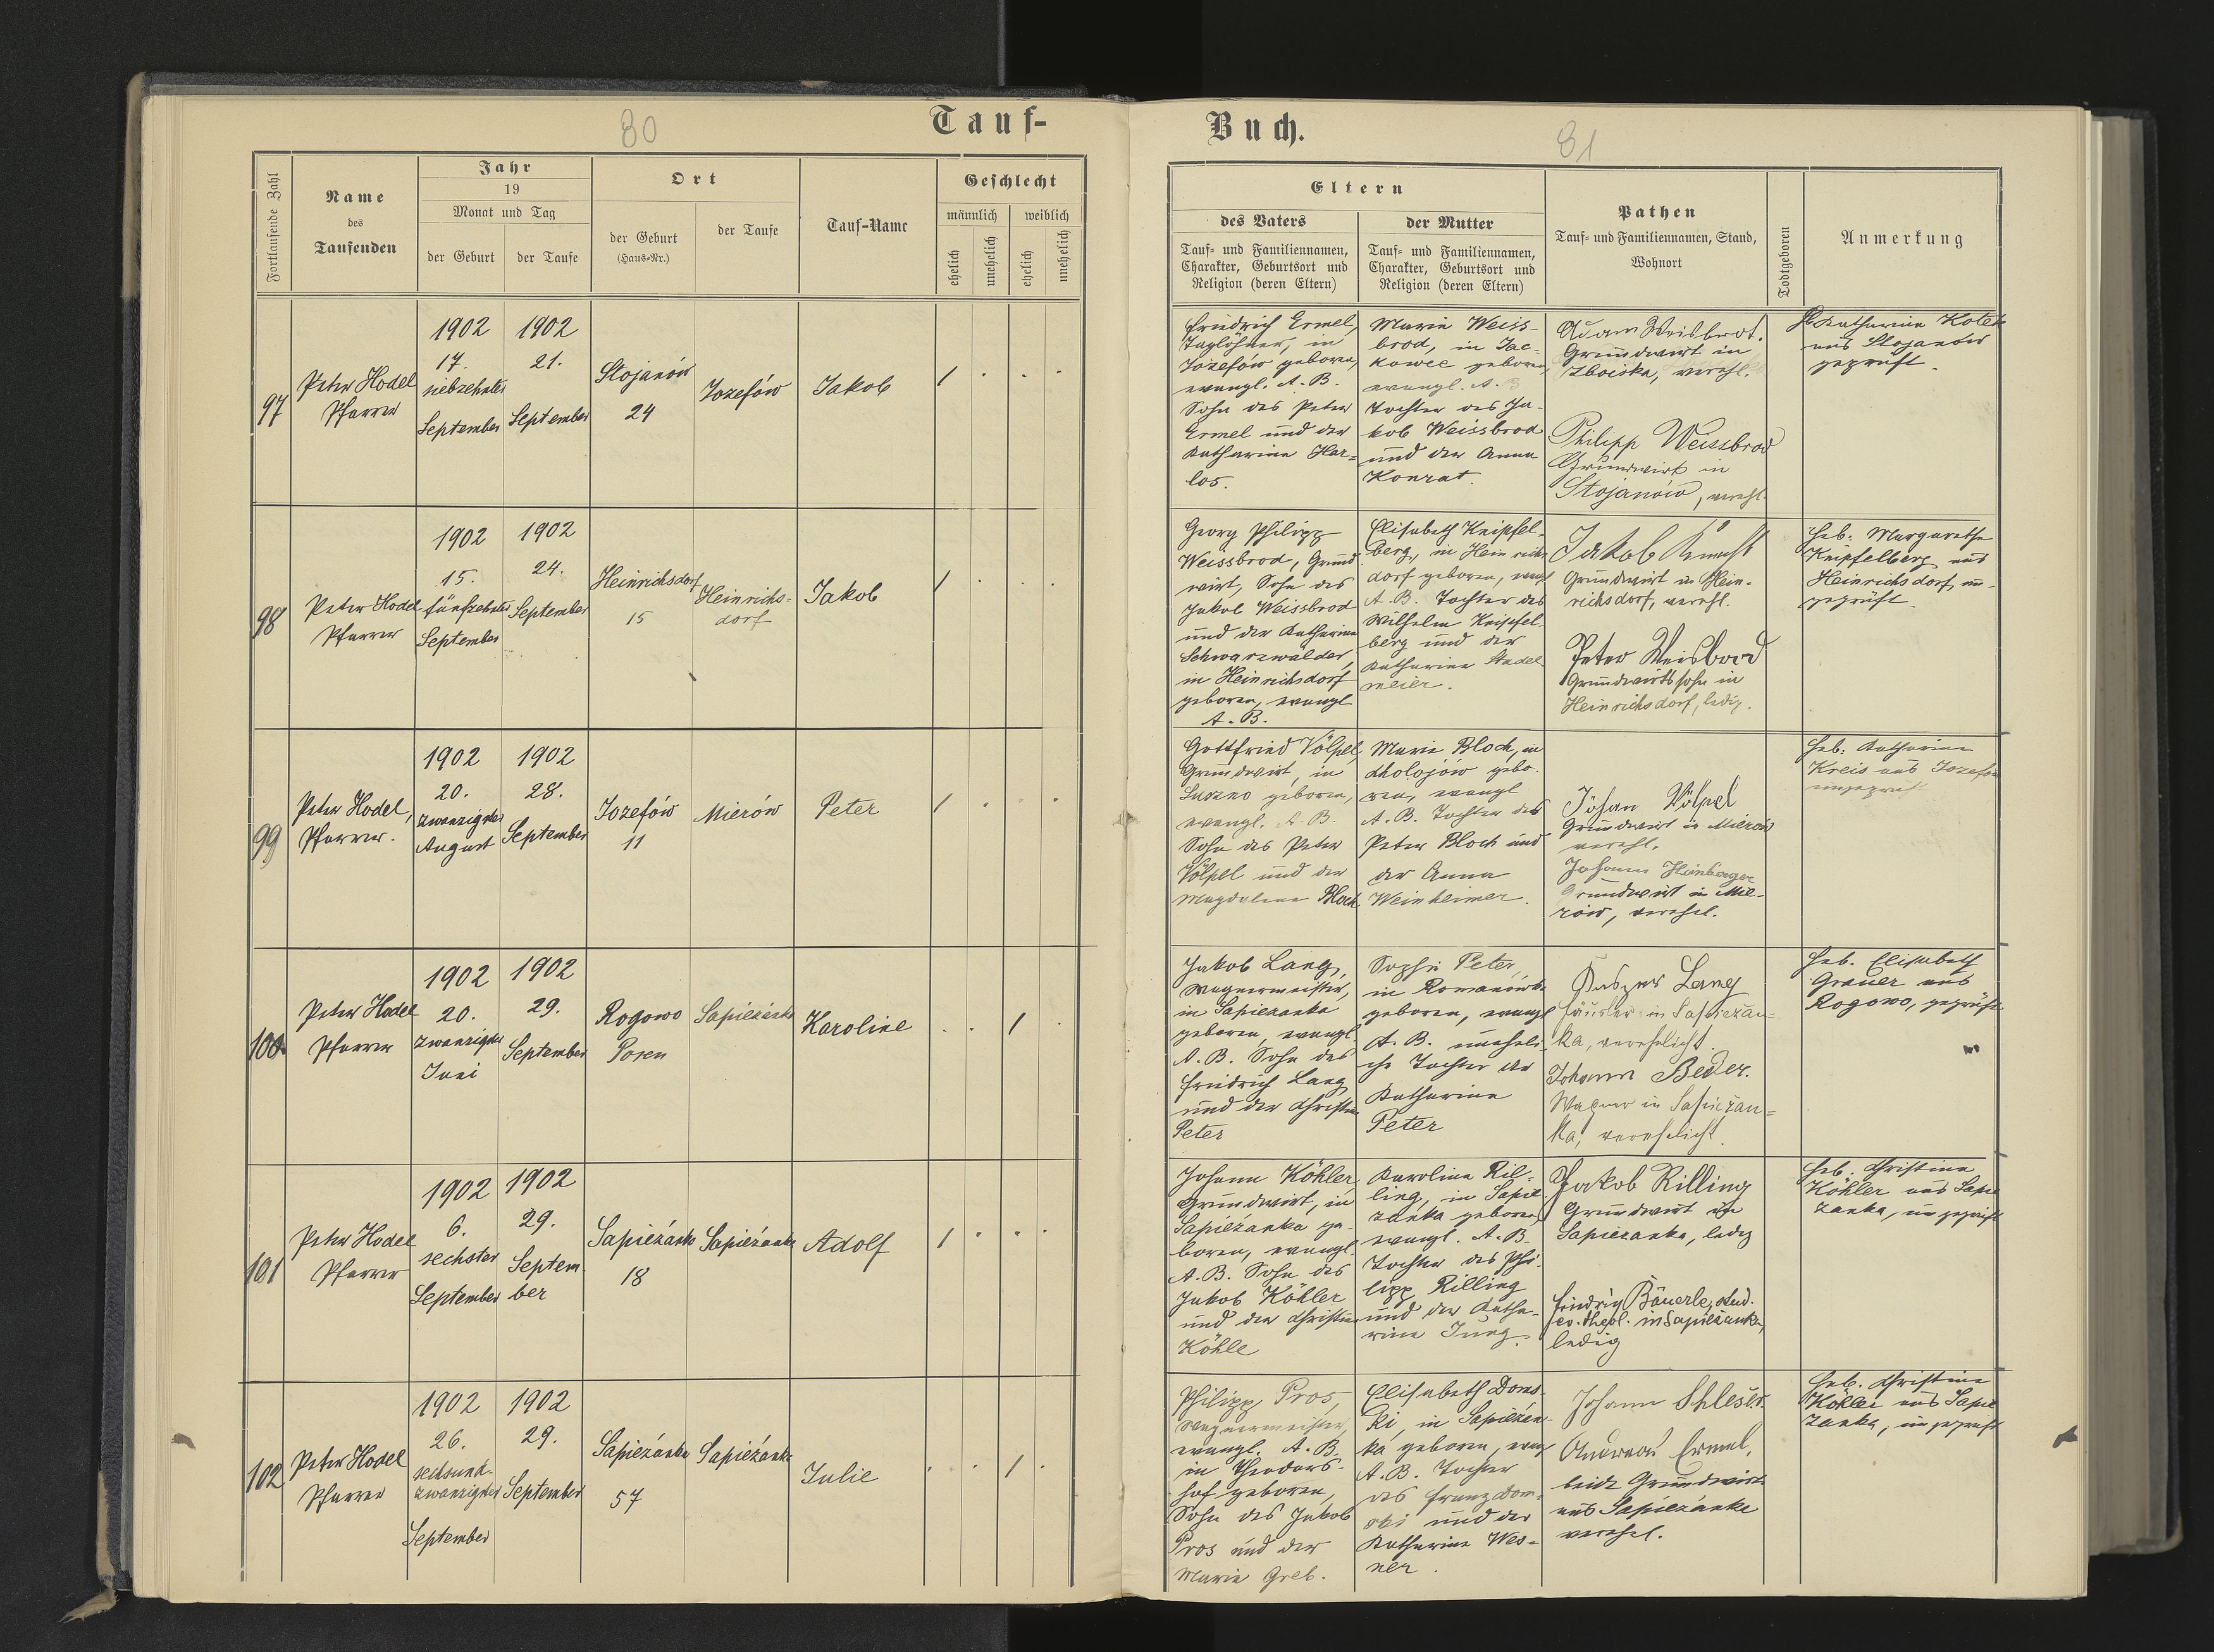 80
Tauf-
Fortlaufende Zahl
Name
des
Taufenden
Jahr
19
Monat und Tag
der Geburt
der Taufe
Ort
der Geburt
(Haus-Nr.)
der Taufe
Tauf-Name
Geschlecht
männlich
weiblich
ehelich
unehelich
ehelich
unehelich
97
Peter Hodel
Pfarrer
1902
17.
siebzehnter
September
1902
21.
September
Stojanów
24
Jozefów
Jakob
98
Peter Hodel
Pfarrer
1902
15.
fünfzehnter
September
1902
24.
September
Heinrichsdorf
15
Heinrichs-
dorf
Jakob
99
Peter Hodel,
Pfarrer.
1902
20.
zwanzigster
August
1902
28.
September
Jozefów
11
Mierów
Peter
100
Peter Hodel
Pfarrer
1902
20.
zwanzigster
Juni
1902
29.
September
Rogowo
Posen
Sapieżanka
Karoline
101
Peter Hodel
Pfarrer
1902
6.
sechster
September
1902
29.
Septem-
ber
Sapieżanka
18
Sapieżanka
Adolf
102
Peter Hodel
Pfarrer
1902
26.
sechsund-
zwanzigster
September
1902
29.
September
Sapieżanka
57
Sapieżanka
Julie
Buch.
81
Eltern
des Vaters
Tauf- und Familiennamen,
Charakter, Geburtsort und
Religion (deren Eltern)
der Mutter
Tauf- und Familiennamen,
Charakter, Geburtsort und
Religion (deren Eltern)
Pathen
Tauf- und Familiennamen, Stand,
Wohnort
Todtgeboren
Anmerkung
Friedrich Ermel,
Taglöhner, in
Jozefów geboren,
evangl. A. B.
Sohn des Peter
Ermel und der
Katharina Har-
los.
Marie Weiss-
brod, in Jac-
kowce geboren,
evangl. A. B
Tochter des Ja-
kob Weissbrod
und der Anna
Konrat.
Adam Weisbrot.
Grundwirt in
Zboiska, verehl.
Philipp Weissbrod
Grundwirt in
Stojanów, verehl.
Katharina Kotek
aus Stojanów
geprüft.
Georg Philipp
Weissbrod, Grund-
wirt, Sohn des
Jakob Weissbrod
und der Katharina
Schwarzwälder,
in Heinrichsdorf
geboren, evangl.
A. B.
Elisabeth Kneipfel-
berg, in Heinrichs
dorf geboren, evangl
A. B. Tochter des
Wilhelm Kneipfel-
berg und der
Katharina Stadel
meier.
Jakob
Grundwirt in Hein-
richsdorf, verehl.
Peter Weisbrod
Grundwirtssohn in
Heinrichsdorf, ledig.
Heb: Margaretha
Kneipfelberg aus
Heinrichsdorf, un-
geprüft.
Gottfried Völpel,
Grundwirt, in
Suszno geboren,
evangl. A. B.
Sohn des Peter
Völpel und der
Magdalena Bloch
Marie Bloch, in
Cholojów gebo-
ren, evangl
A. B. Tochter des
Peter Bloch und
der Anna
Weinheimer.
Johan Völpel
Grundwirt in Mierów
verehl.
Johann
Grundwirt in Mie-
rów, verehel.
Heb: Katharina
Kreis aus Jozefów
ungeprüft
Jakob Lang,
Wagnermeister,
in Sapieżanka
geboren, evangl.
A. B. Sohn des
Friedrich Lang
und der Christina
Peter
Sophie Peter,
in Romanówka
geboren, evangl
A. B. uneheli-
che Tochter der
Katharina
Peter
Lang
Häusler in Sapieżan-
ka, verehelicht.
Johann Beder.
Wagner in Sapieżan-
ka, verehelicht.
Heb. Elisabeth
Grauer aus
Rogowo, geprüft.
Johann Köhler
Grundwirt, in
Sapieżanka ge-
boren, evangl.
A. B. Sohn des
Jakob Köhler
und der Christina
Köhle
Karolina Ril-
ling, in Sapie-
żanka geboren,
evangl. A. B.
Tochter des Phi-
lipp Rilling
und der Katha-
rina Jung.
Jakob Rilling
Grundwirt in
Sapieżanka, ledig
Friedrich Bäuerle, stud.
ev. theol. in Sapieżanka,
ledig
Heb. Christina
Köhler aus Sapie
żanka, ungeprüft
Philipp Pros,
Wagnermeister,
evangl. A. B.
in Theodors-
hof geboren,
Sohn des Jakob
Pros und der
Maria Greb.
Elisabeth Doms-
ki, in Sapieżan-
ka geboren, evang
A. B. Tochter
des Franz Dom-
ski und der
Katharina Wes-
ner.
Johann
Andreas Ermel,
beide Grundwirte
aus Sapieżanka
verehel.
Heb. Christina
Köhler aus Sapie
żanka, ungeprüft